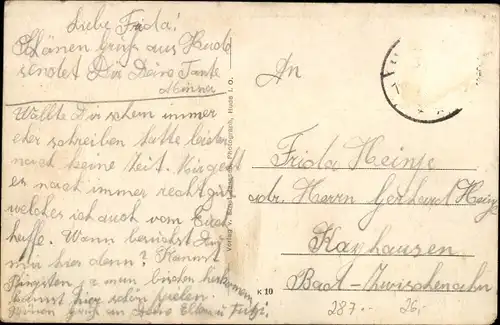 Liebe Frida!
Schönen Gruß aus Hude
sendet Dir Deine Tante
Minna
Wollte Dir schon immer
eher schreiben hatte leider
noch keine Zeit.
es noch immer recht gut
welches ich auch von Euch
hoffe. Wann besuchst Du
mir hier denn? Kannst
Pfingsten mein bischen herkommen
kannst hier schön spielen.
Schönen Gruß an Deine Eltern u. Fritzi.
Verlag v. Photograph, Hude i. O.
K 10
An
Frida Heinje
adr. Herrn Gerhard Heinje
Kayhausen
Bad-Zwischenahn
287.- 26,-